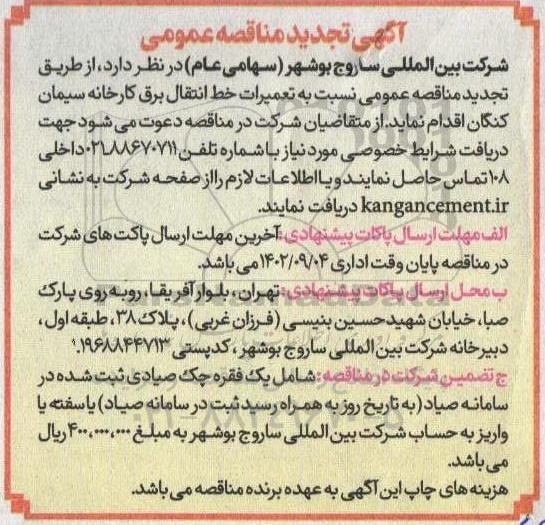 آگهی تجدید مناقصه عمومی
شرکت بین المللی ساروج بوشهر (سهامی عام) در نظر دارد، از طریق
تجدید مناقصه عمومی نسبت به تعمیرات خط انتقال برق کارخانه سیمان
کنگان اقدام نماید. از متقاضیان شرکت در مناقصه دعوت می شود جهت
دریافت شرایط خصوصی مورد نیاز با شماره تلفن ۰۲۱-۸۸۶۷۰۷۱۱ داخلی
۱۰۸ تماس حاصل نمایند و یا اطلاعات لازم را از صفحه شرکت به نشانی
kangancement.ir دریافت نمایند.
الف مهلت ارسال پاکات پیشنهادی: آخرین مهلت ارسال پاکت های شرکت
در مناقصه پایان وقت اداری ۱۴۰۲/۰۹/۰۴ می باشد.
ب محل ارسال پاکات پیشنهادی: تهران، بلوار آفریقا، روبه روی پارک
صبا، خیابان شهید حسین بنیسی (فرزان غربی)، پلاک ۳۸، طبقه اول،
دبیرخانه شرکت بین المللی ساروج بوشهر، کدپستی ۱۹۶۸۸۴۴۷۱۳.
ج تضمین شرکت در مناقصه: شامل یک فقره چک صیادی ثبت شده در
سامانه صیاد (به تاریخ روز به همراه رسید ثبت در سامانه صیاد) یا سفته یا
واریز به حساب شرکت بین المللی ساروج بوشهر به مبلغ ۴۰۰،۰۰۰،۰۰۰ ریال
می باشد.
هزینه های چاپ این آگهی به عهده برنده مناقصه می باشد.